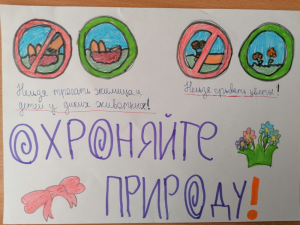 Нельзя трогать жилища и
детей у диких животных!
Нельзя срывать цветы!
ОХРОНЯЙТЕ
ПРИРОДУ!